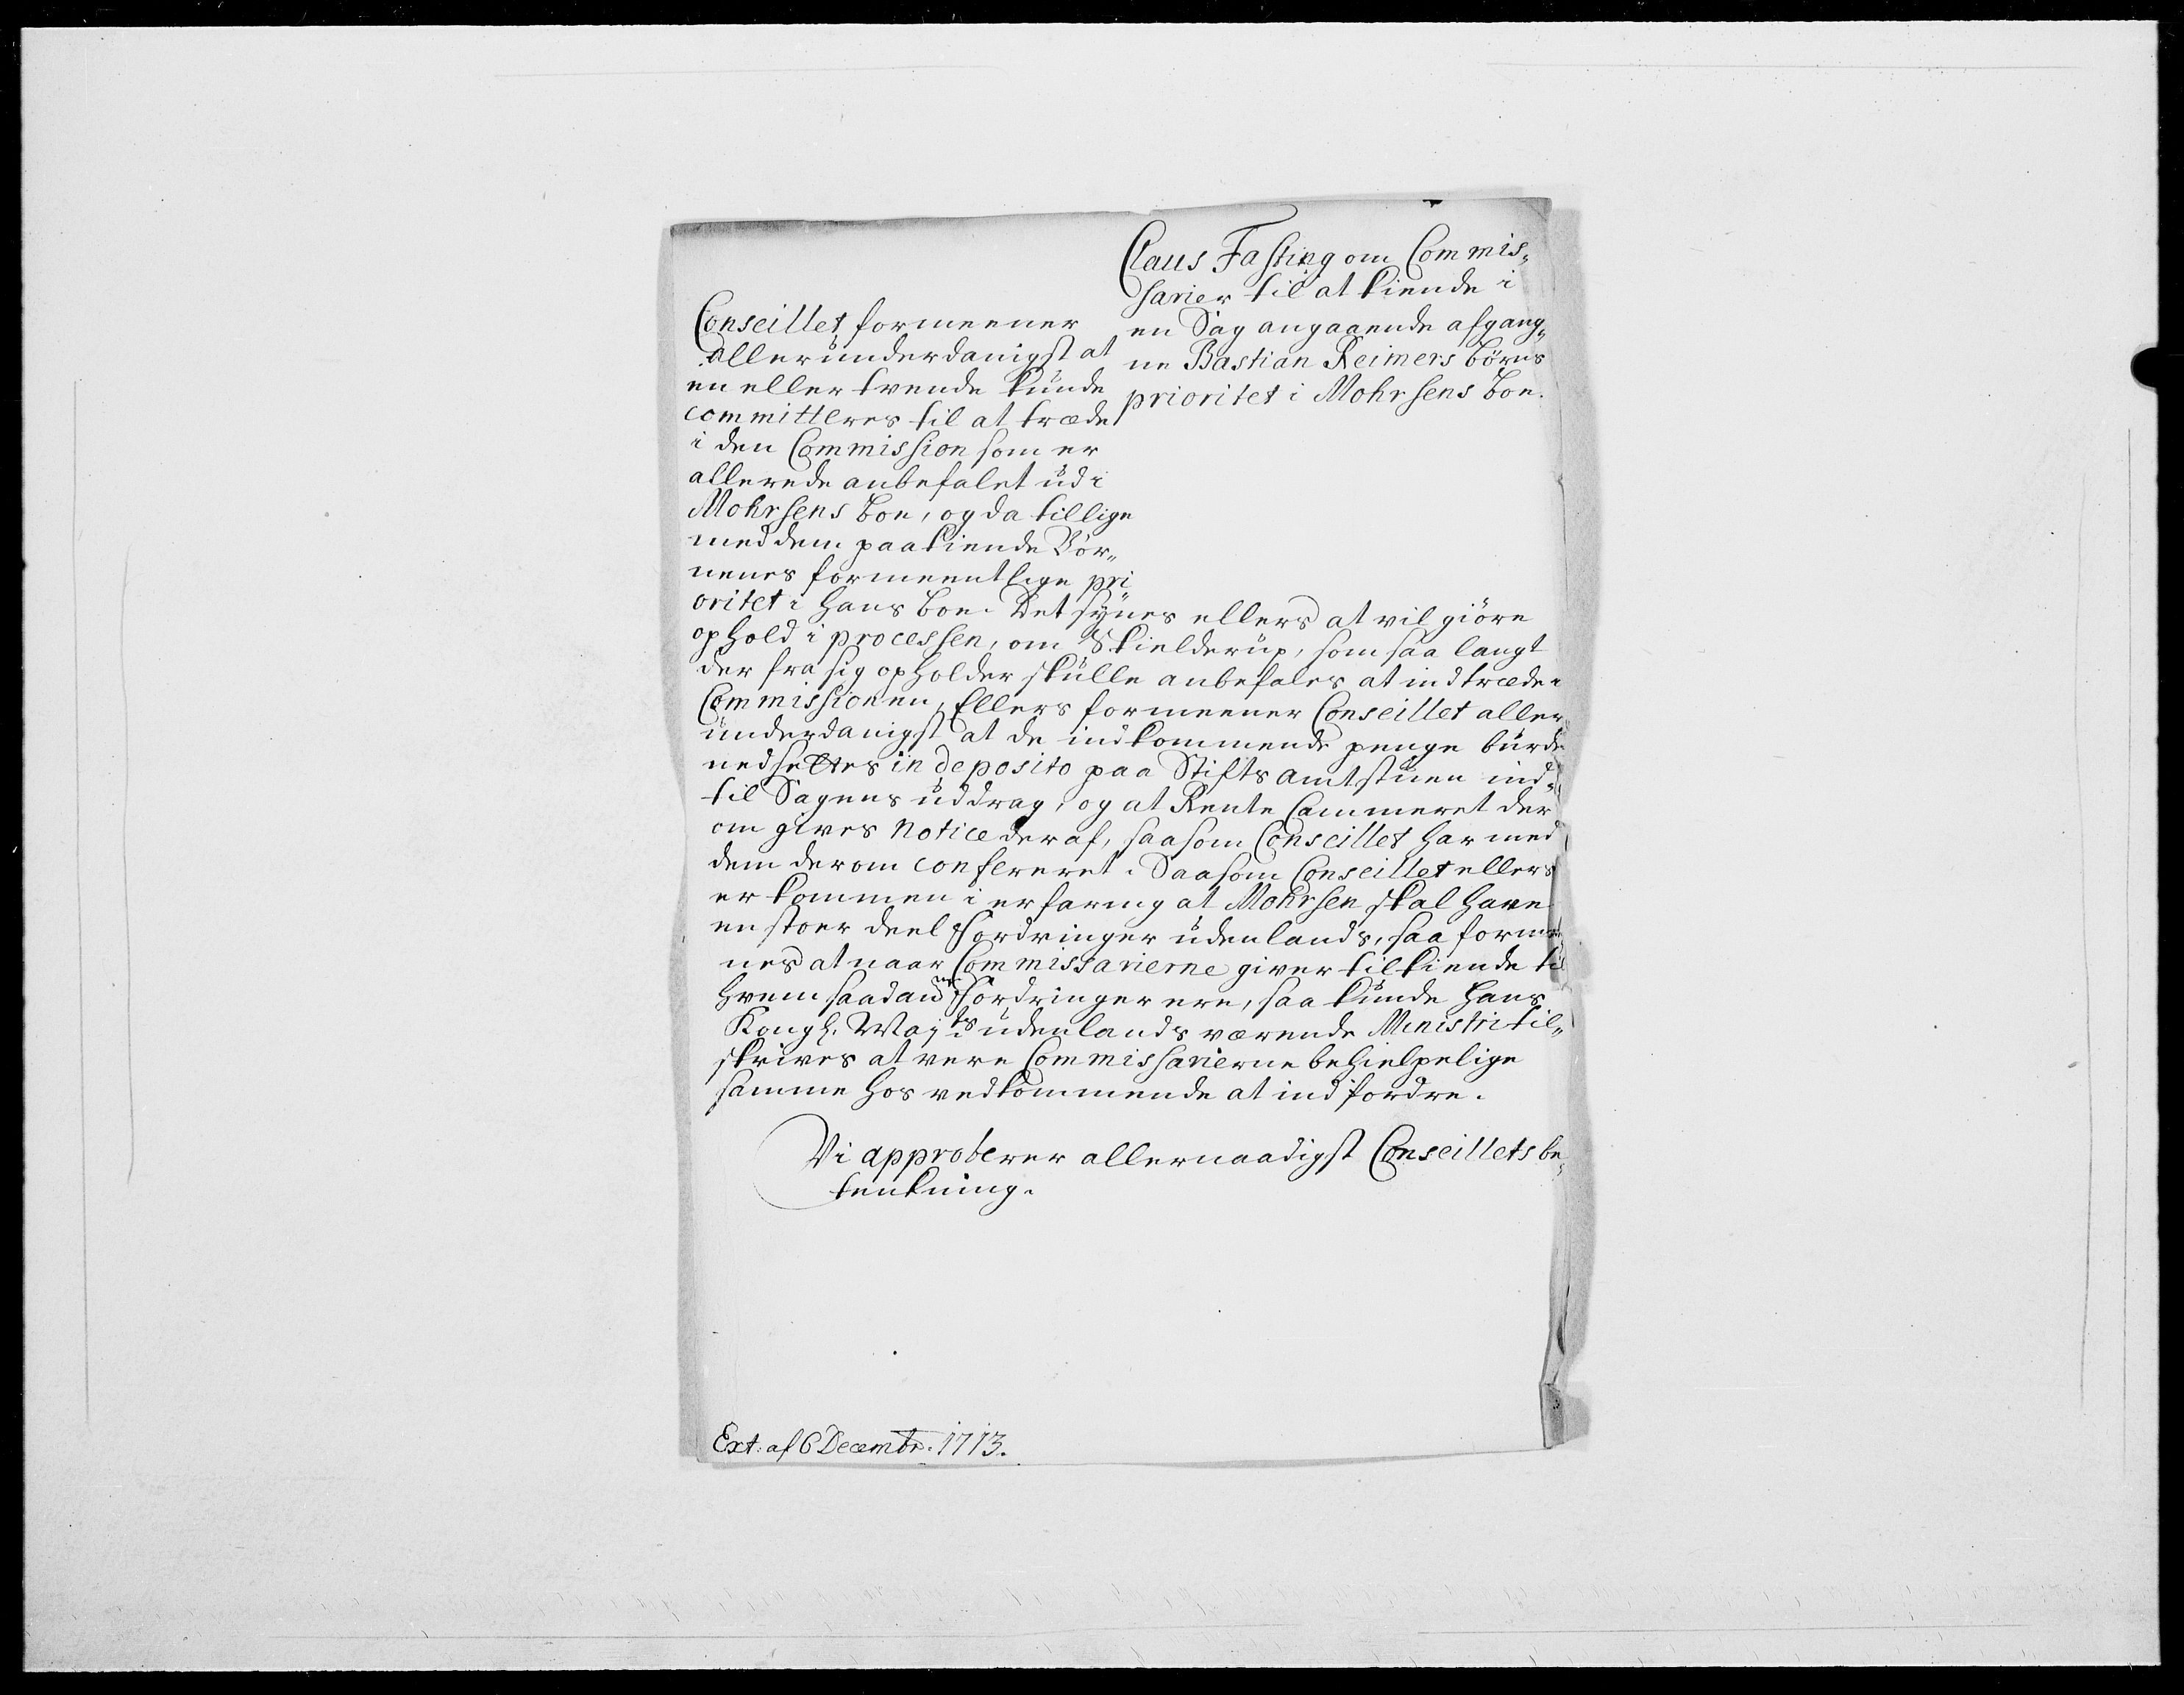 Claus Fasting om Commis„
sarier til at kiende i
en Sag angaaende afgang„
ne Bastian Reimers börns
prioritet i Mohrsens boe.
Conseillet formeener
alleründerdanigst at
en eller tvende kunde
committeres til at træde
i den Commission som er
allerede anbefalet üdi
Mohrsens boe, og da tillige
med dem paakiende Bör„
nenes formeentlige pri„
oritet i hans boe. Det synes ellers at vil giöre
ophold i processen, om Skielderüp, som saa langt
der fra sig opholder skülle anbefales at indtræde i
Commissionen, Ellers formeener Conseillet aller„
ünderdanigst at de indkommende penge bürde
nedsettes in deposito paa Stiftsamtstüen ind„
til Sagens üddrag, og at Rente Cammeret der
om gives notice deraf, saasom Conseillet har med
dem derom confereret. Saasom Conseillet ellers
er kommen i erfaring at Mohrsen skal have
en stoer deel fordringer üdenlands, saa formee
nes at naar Commissarierne giver tilkiende til
hvem saadane fordringer ere, saa künde Hans
Kongl. Majts üdenlands værende Ministri til„
skrives at vere Commissarierne behielpelige
samme hos vedkommende at indfordre.
Vi approberer allernaadigst Conseillets be„
tenkning.
Ext: af 6 Decembr. 1713.